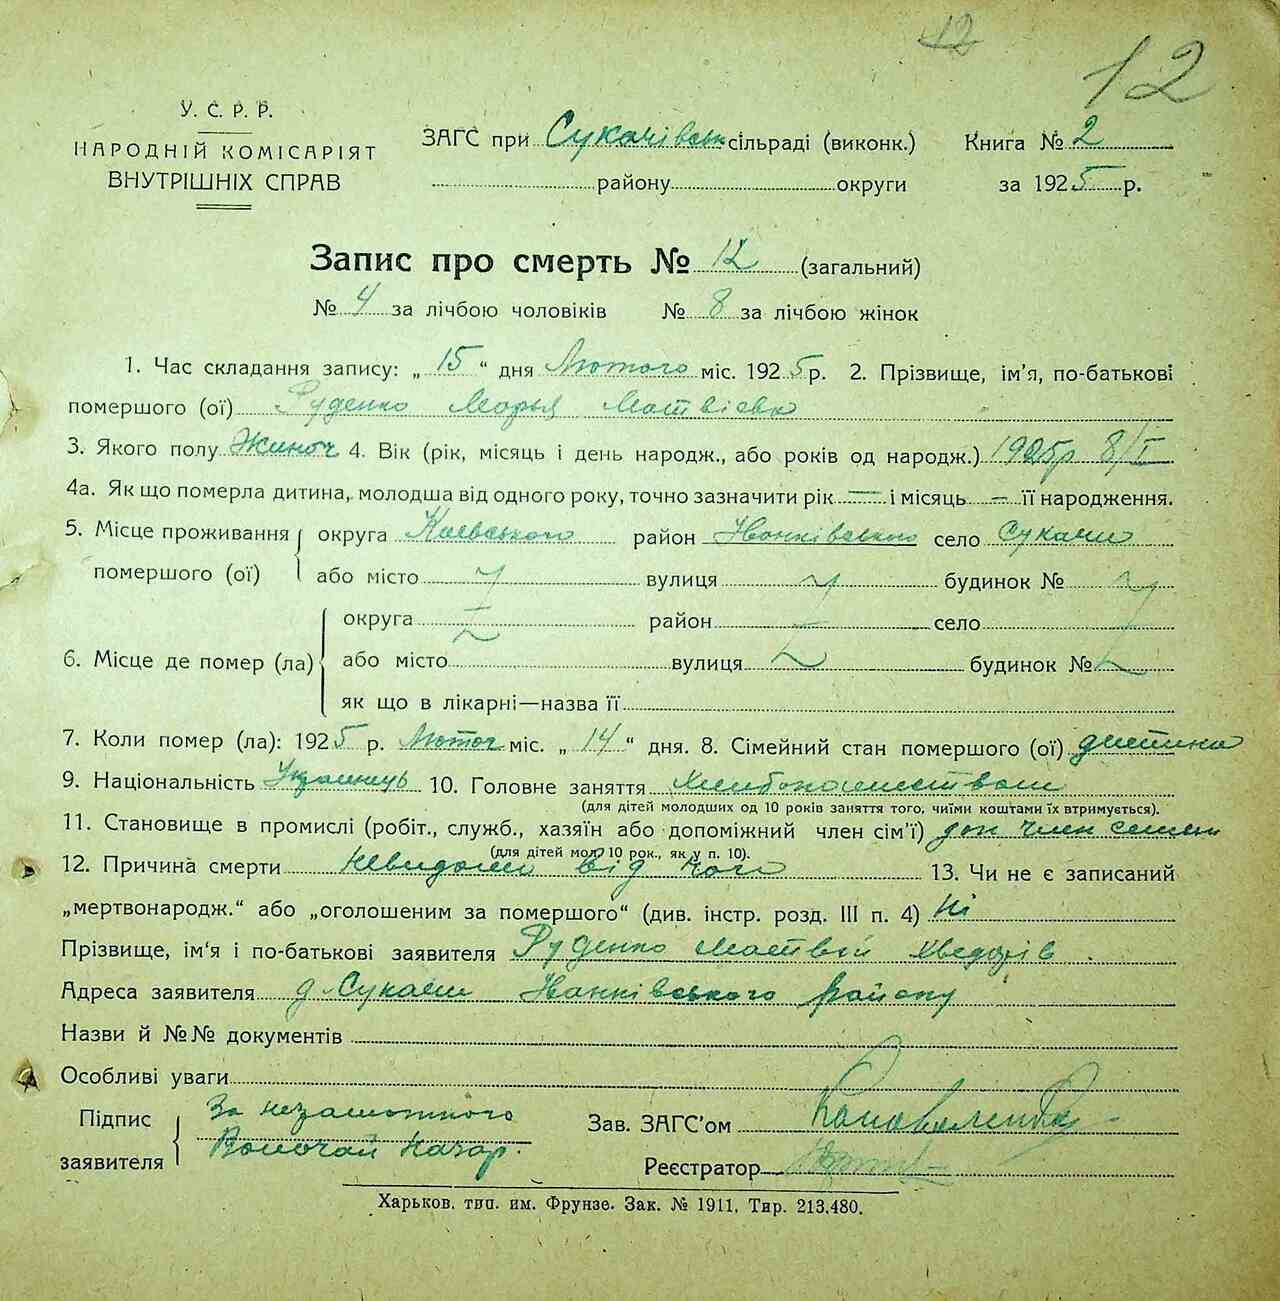 12 12
У. С. Р. Р.
НАРОДНІЙ КОМІСАРІЯТ
ВНУТРІШНІХ СПРАВ
ЗАГС при Сукачівськ сільраді (виконк.) Книга № 2
району округи за 1925 р.
Запис про смерть № 12 (загальний)
№ 4 за лічбою чоловіків № 8 за лічбою жінок
1. Час складання запису: „ 15 “ дня Лютого міс. 1925 р. 2. Прізвище, ім'я, по-батькові
помершого (ої) Руденко Марья Матвієва
3. Якого полу Жиноч 4. Вік (рік, місяць і день народж., або років од народж.) 1925р 8/I
4а. Як що померла дитина, молодша від одного року, точно зазначити рік — і місяць — її народження.
5. Місце проживання округа Киевського район Іванківського село Сукачи
помершого (ої) або місто вулиця будинок №
округа район село
6. Місце де помер (ла) або місто вулиця будинок №
як що в лікарні—назва її
7. Коли помер (ла): 1925 р. Лютог міс. „ 14 “ дня. 8. Сімейний стан помершого (ої) дитина
9. Національність 10. Головне заняття
(для дітей молодших од 10 років заняття того, чиїми коштами їх втримується).
11. Становище в промислі (робіт., служб., хазяїн або допоміжний член сім'ї) доп член семьи
(для дітей мол. 10 рок., як у п. 10).
12. Причина смерти невидомо від чого 13. Чи не є записаний
„мертвонародж.“ або „оголошеним за помершого“ (див. інстр. розд. III п. 4) Ні
Прізвище, ім‘я і по-батькові заявителя Руденко Матвій Хведорів
Адреса заявителя д. Сукачи Іванківського району
Назви й №№ документів
Особливі уваги
Підпис За незамотного
заявителя Назар.
Зав. ЗАГС'ом
Реєстратор
Харьков. тип. им. Фрунзе. Зак. № 1911. Тир. 213.480.